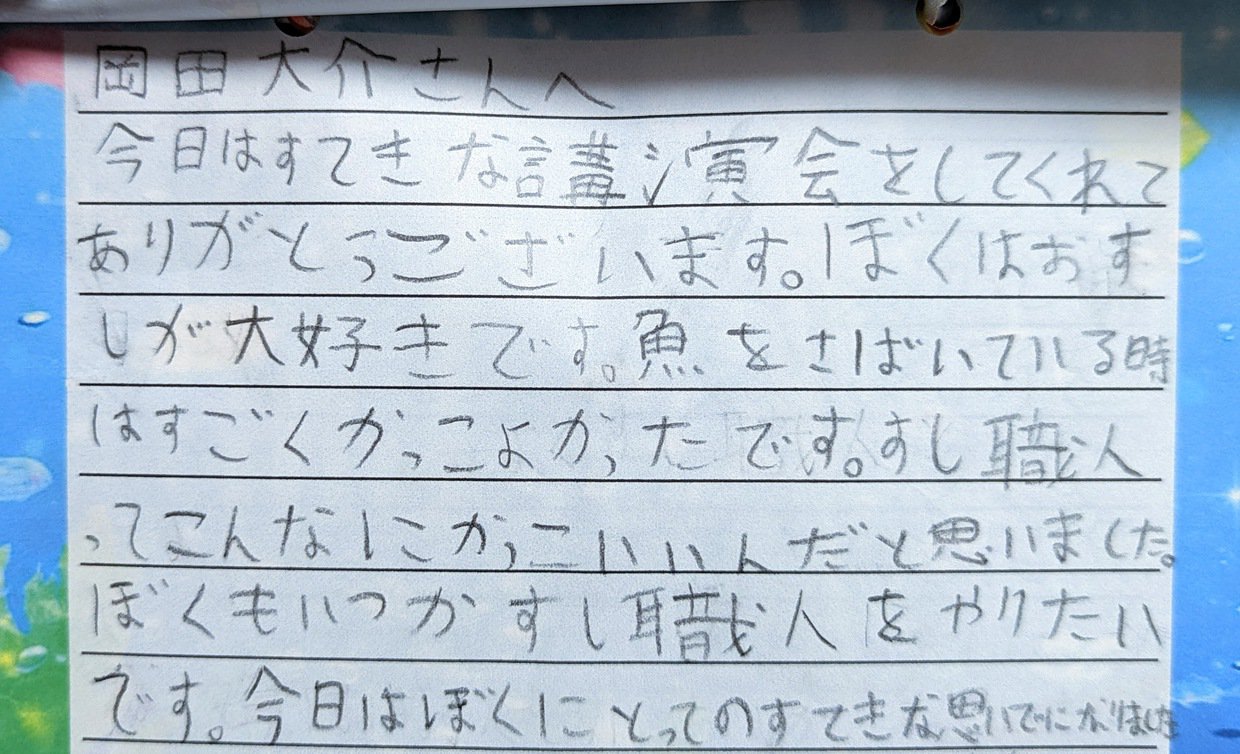 岡田大介さんへ
今日はすてきな講演会をしてくれて
ありがとっございます。ぼくはおす
しが大好きです。魚をさばいている時
はすごくかっこよかったです。すし職人
ってこんなにかっこいいんだと思いました。
ぼくもいつかすし職人をやりたい
です。今日はぼくにとってのすてきな思いでになりました